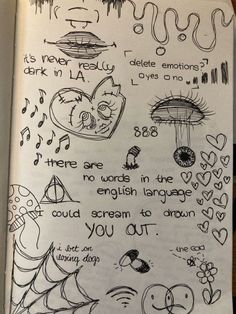 it's never really
dark in L.A.
delete emotions?
yes no
888
there are
no words in the
english language
I could scream to drown
YOU OUT.
i bet on
losing dogs
- the end